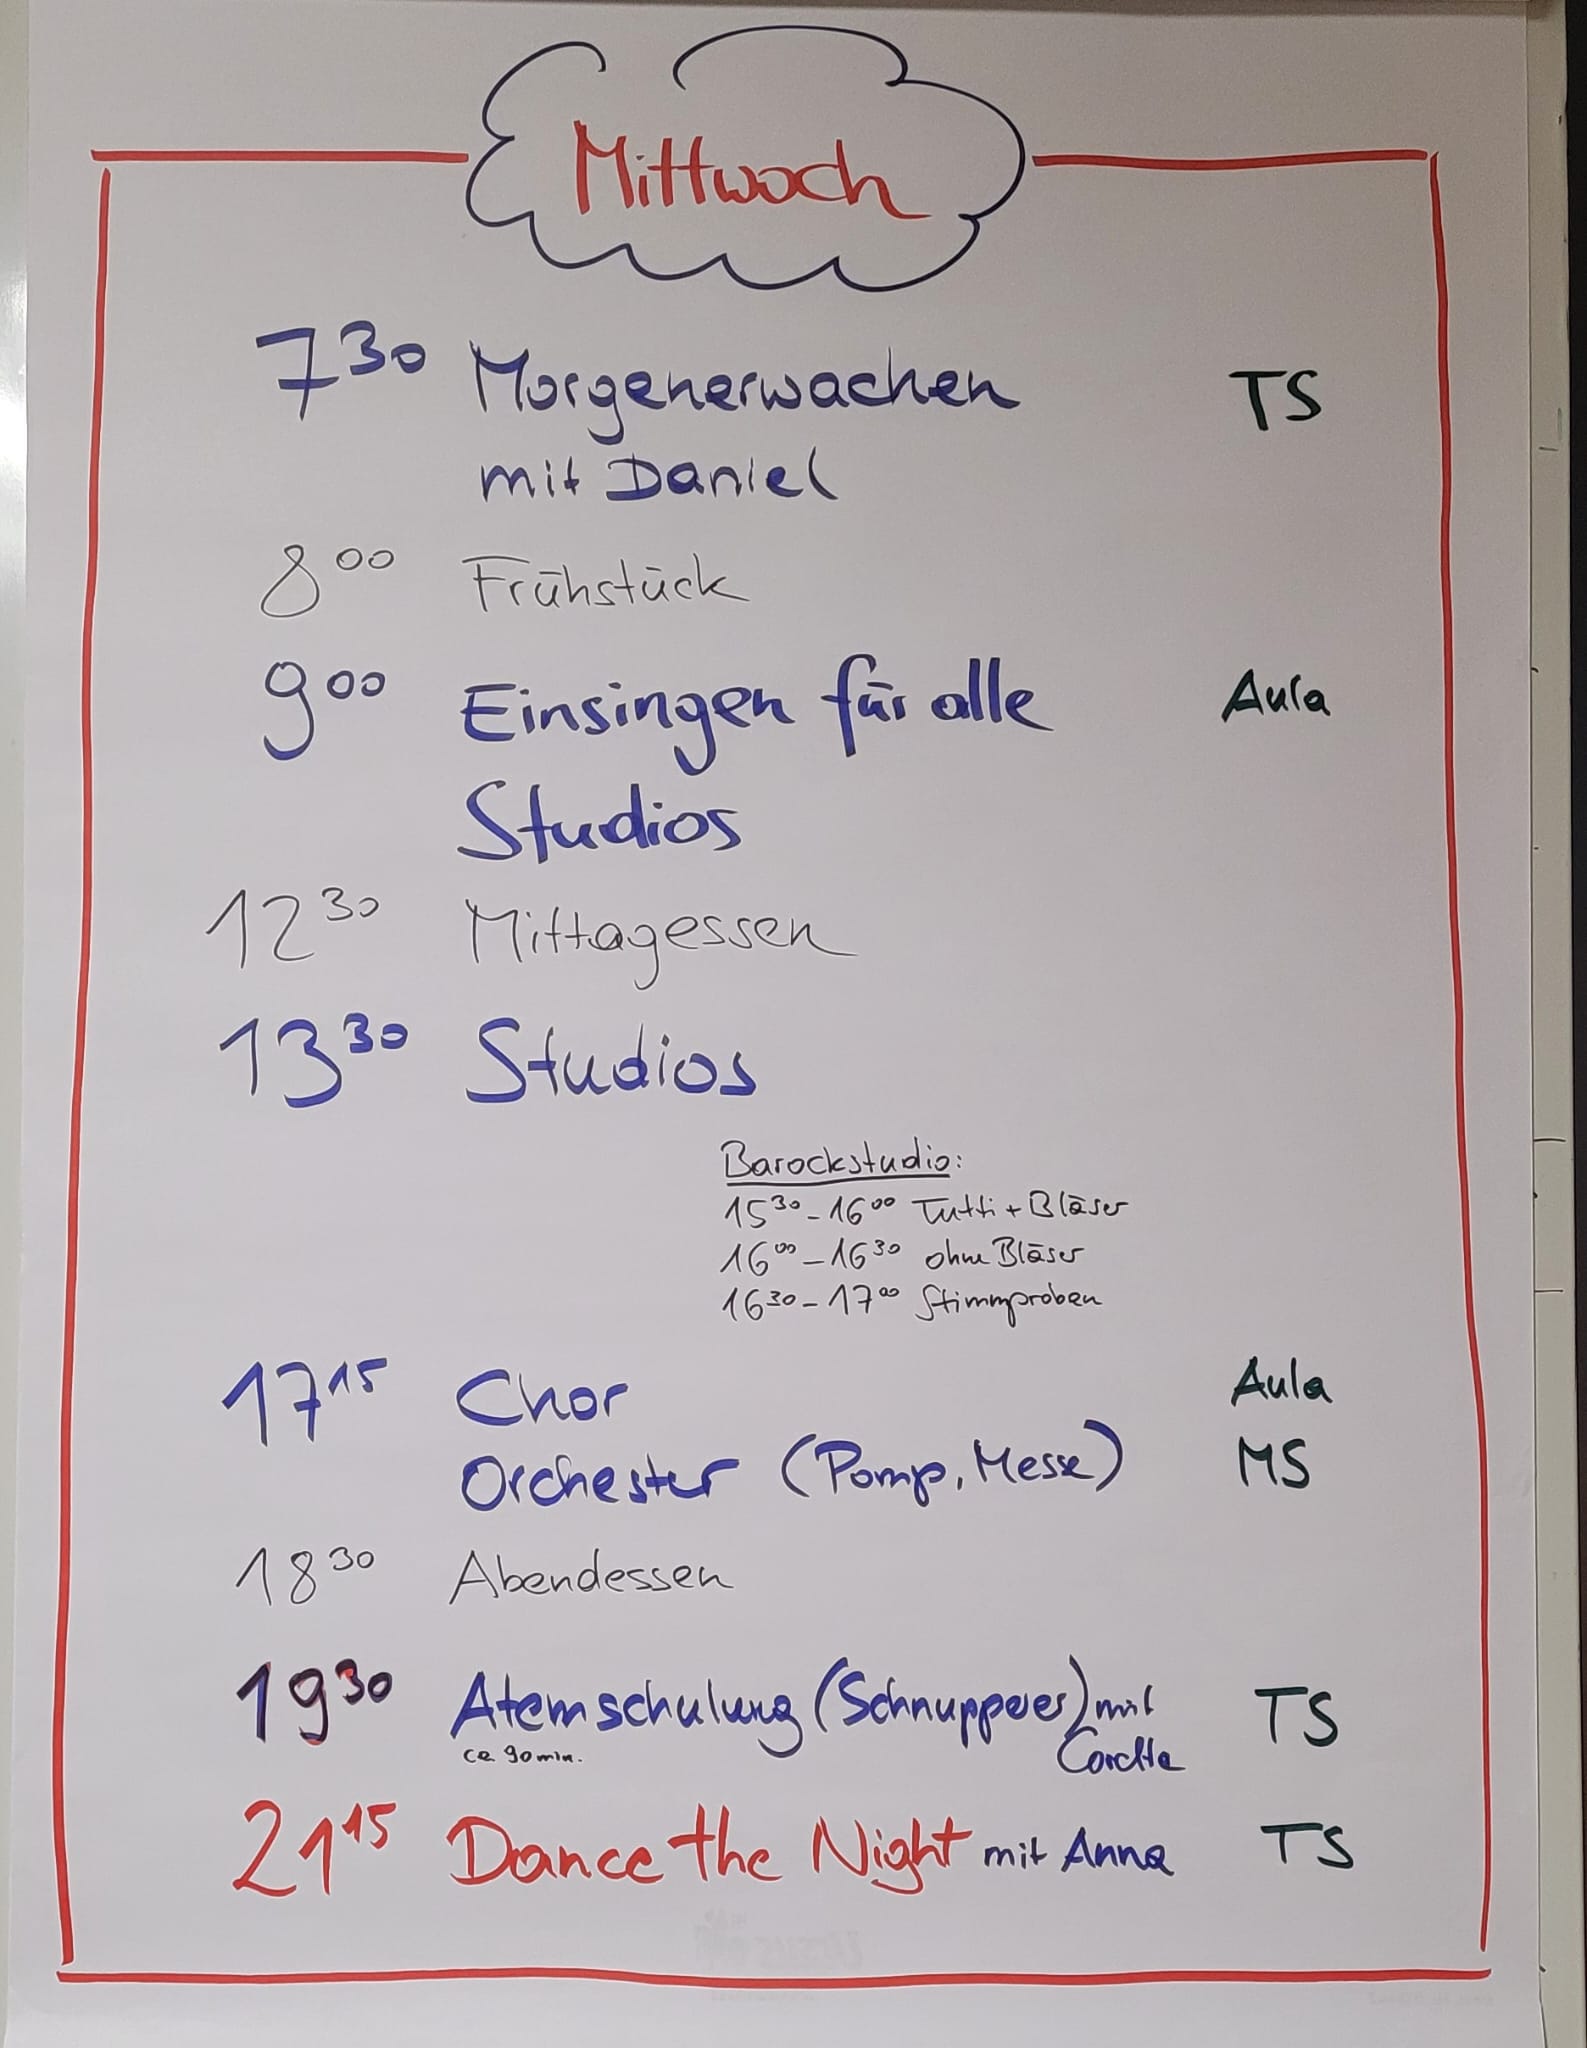 Mittwoch
7³⁰ Morgenerwachen TS
mit Daniel
8⁰⁰ Frühstück
9⁰⁰ Einsingen für alle Aula
Studios
12³⁰ Mittagessen
13³⁰ Studios
Barockstudio:
15³⁰ - 16⁰⁰ Tutti + Bläser
16⁰⁰ - 16³⁰ ohne Bläser
16³⁰ - 17⁰⁰ Stimmproben
17¹⁵ Chor Aula
Orchester (Pomp, Messe) MS
18³⁰ Abendessen
19³⁰ Atemschulung (Schnupper) mit TS
ca 90 min.
21¹⁵ Dance the Night mit Anna TS